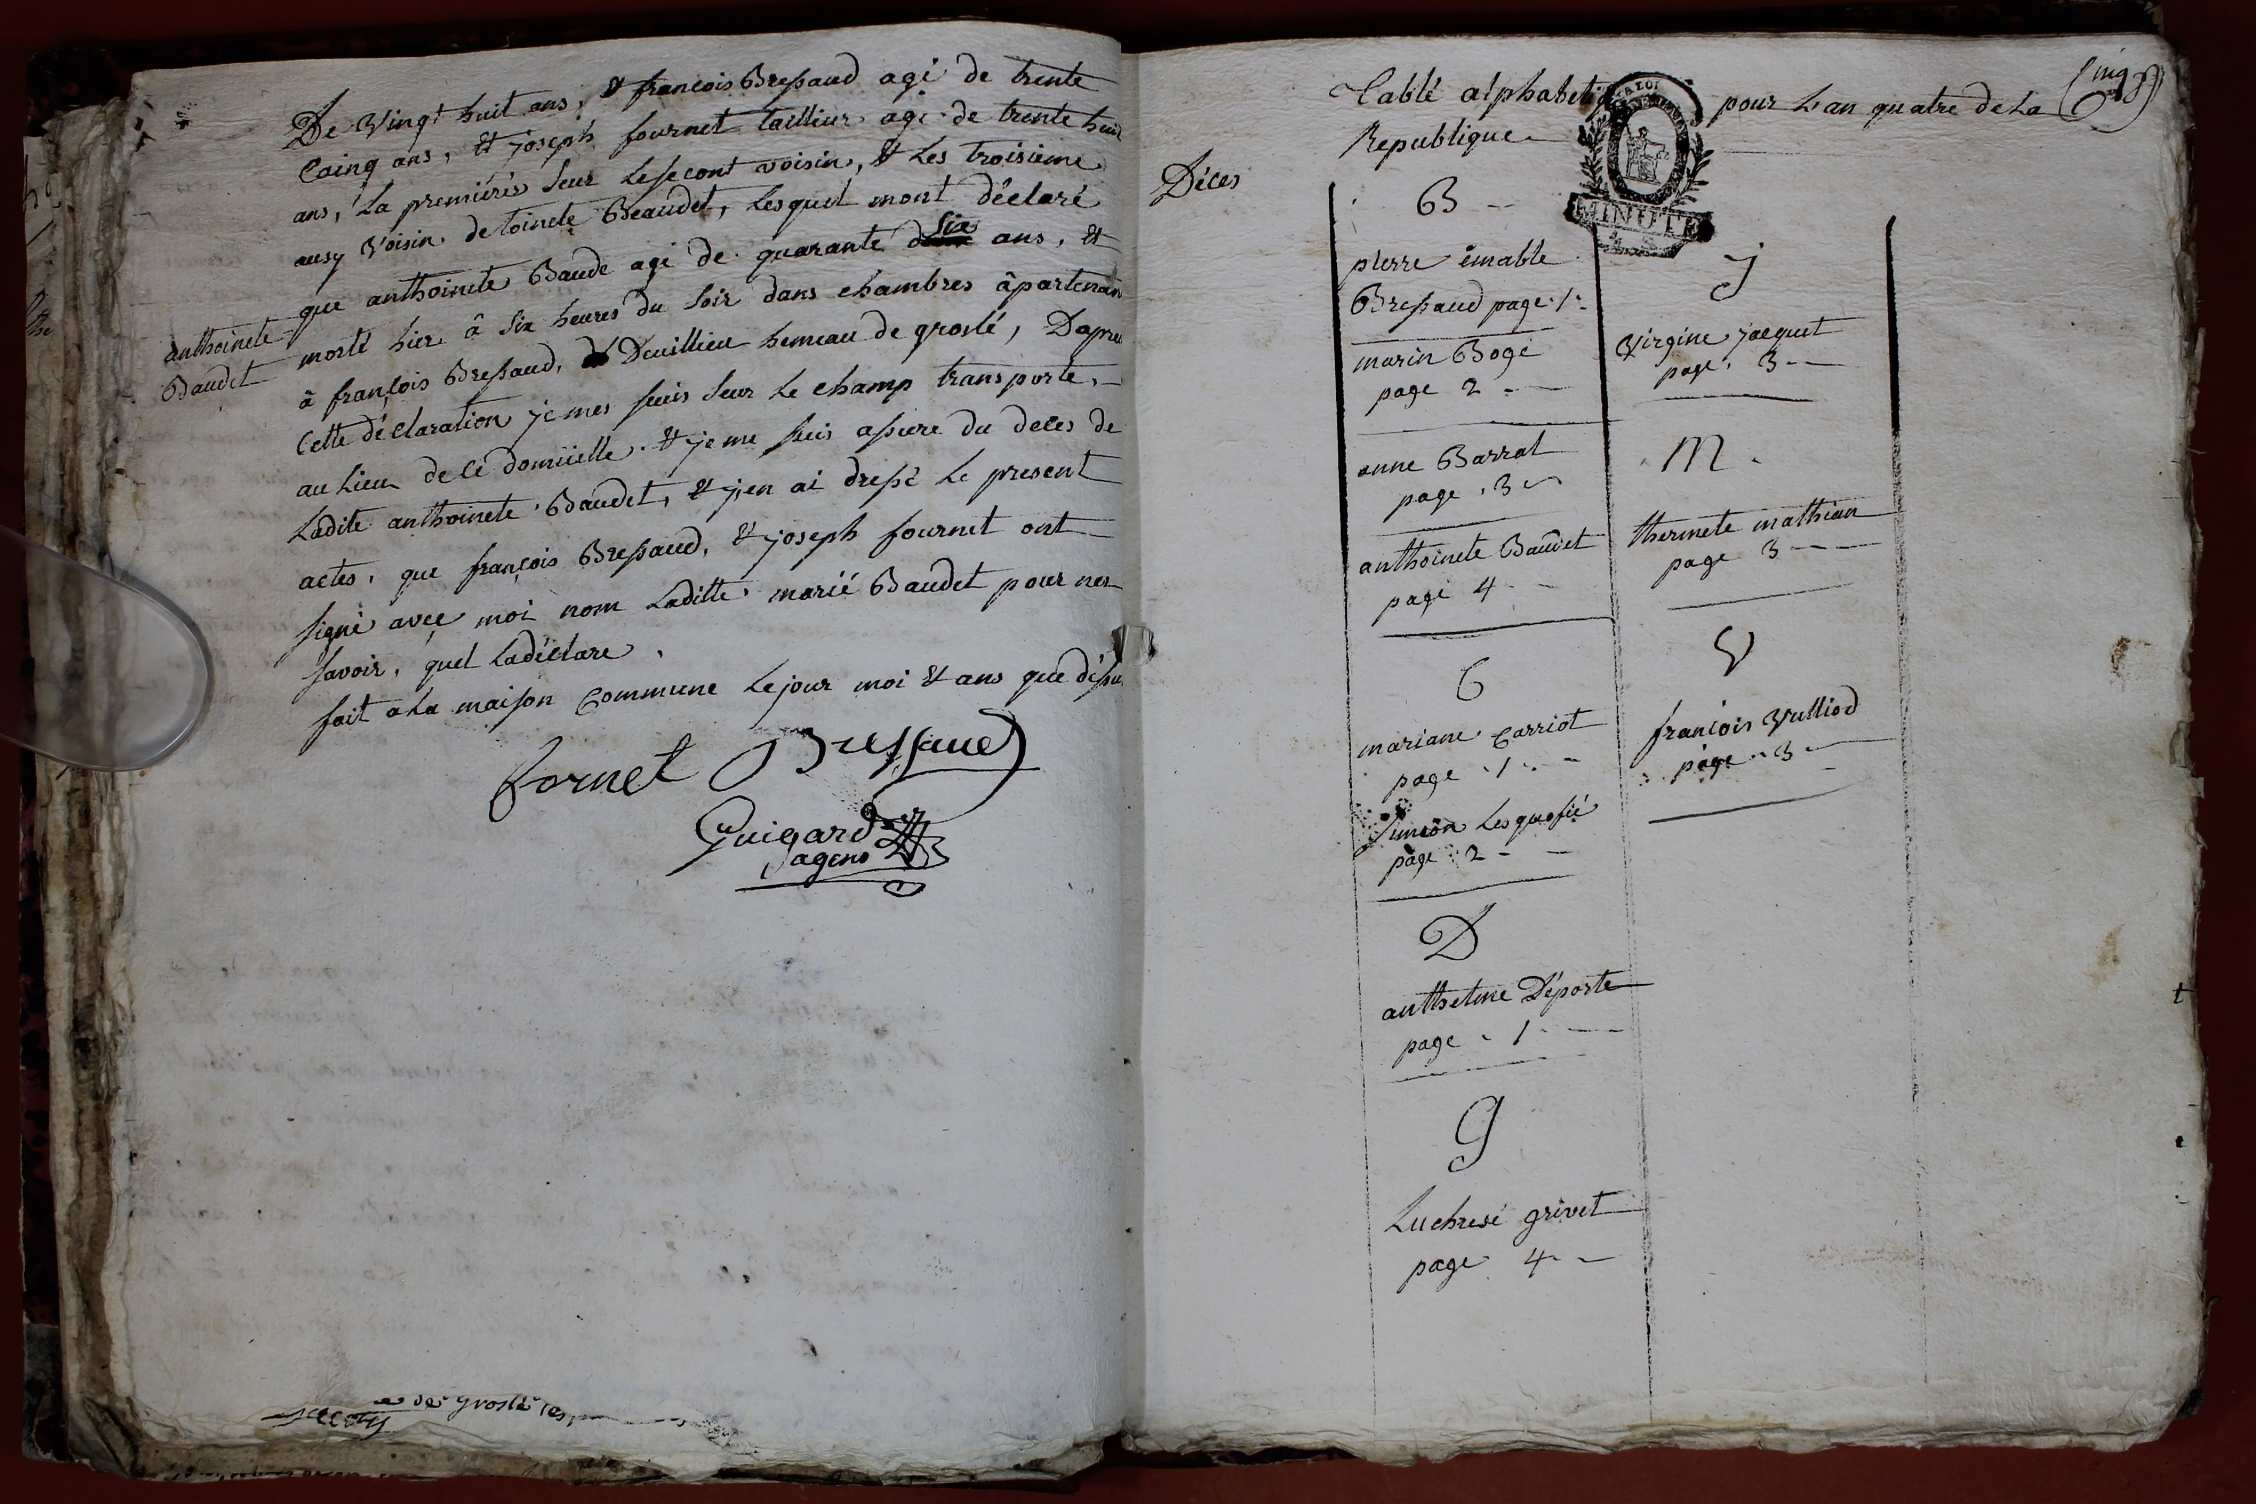 De Vingt huit ans, et françois Bressaud agé de trente
Cainq ans, et joseph fournet taillieur agé de trente huit
ans, La premières seur Le secont voisin, et Les troisieme
ausy Voisin de toinete Beaudet, Lesquel mont déclaré
que anthoinete Baude agé de quarante six ans, et
anthoinete
Baudet
morte hier â six heures du soir dans chambres âpartenan
à françois Bressaud, Deuillieu hemeau de groslé, Dapres
Cette déclaration je mes suis seur Le champ transporte,
au Lieu de cé domicille. et je me suis assure du deces de
Ladite anthoinete Baudet, et jen ai dressé Le present
actes, que françois Bressaud, et joseph fournet ont
signé avec moi nom Laditte marié Baudet pour nes
savoir, quel La déclare.
fait a La maison Commune Le jour moi et ans que déssu
fornet Bressaud
Guigard
agent
de groslé
Cinq
Tablé alphabetiq pour L'an quatre de La
Republique
Décès
LA LOI
MINUTE
B
pierre émable
Bressaud page 1
marin Bogé
page 2
anne Barrat
page 3
anthoinete Baudet
page 4
C
mariane Carriot
page 1
Simeon Lesquofié
page 2
D
anthelme Déporte
page 1
G
Luchresé grivet
page 4
j
Virgine jacquet
page 3
M
thermete mathian
page 3
V
francois Vulliod
page 3